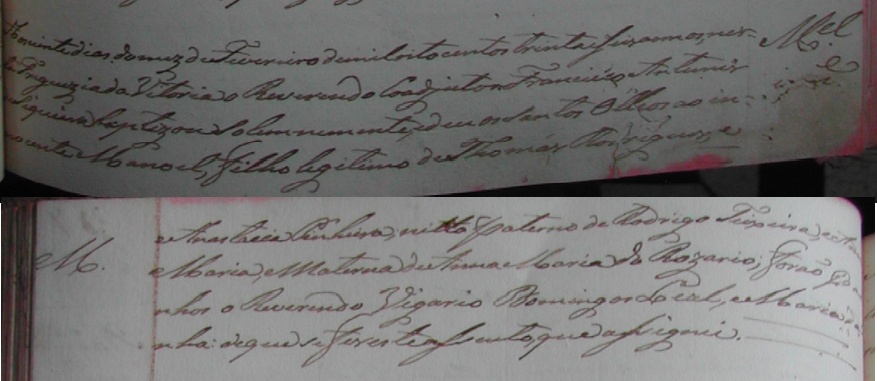 Aos vinte dias do mez de Fevereiro de mil oito centos trinta e seis annos, nes- M.el
ta Freguezia da Vitoria o Reverendo Coadjutor Francisco Antunes
de Siqueira baptizou Solemnemente, e deu os Santos Olhos ao in-
nocente Manoel, filho legitimo de Thomás Rodrigues, e
M. e Anastacia Pinheira, netto paterno de Rodrigo Teixeira, e
Maria, e Materna de Anna Maria do Rozario; forão Padri
nhos o Reverendo Vigario Domingos Leal, e Maria
nha: de que se fez este assento, que assignei.